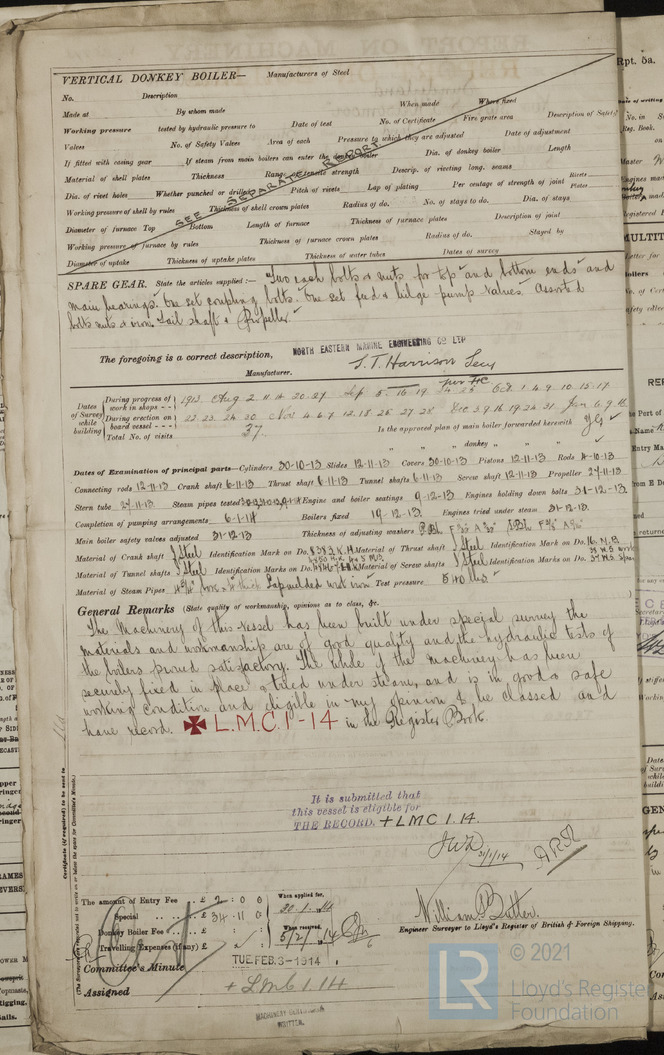 VERTICAL DONKEY BOILER— Manufacturers of Steel
No. Description
Made at By whom made When made Where fixed
Working pressure tested by hydraulic pressure to Date of test No. of Certificate Fire grate area Description of Safety
Valves No. of Safety Valves Area of each Pressure to which they are adjusted Date of adjustment
If fitted with easing gear If steam from main boilers can enter the donkey boiler Dia. of donkey boiler Length
Material of shell plates Thickness Range of tensile strength Descrip. of riveting long. seams
Dia. of rivet holes Whether punched or drilled Pitch of rivets Lap of plating Per centage of strength of joint Rivets Plates
Working pressure of shell by rules Thickness of shell crown plates Radius of do. No. of stays to do. Dia. of stays
Diameter of furnace Top Bottom Length of furnace Thickness of furnace plates Description of joint
Working pressure of furnace by rules Thickness of furnace crown plates Radius of do. Stayed by
Diameter of uptake Thickness of uptake plates Thickness of water tubes Dates of survey
SEE SEPARATE REPORT
SPARE GEAR. State the articles supplied:— Two each bolts & nuts for top and bottom ends and
main bearings. One set coupling bolts. One set feed & bilge pump valves. Assorted
bolts nuts & iron. Tail shaft & Propeller.
The foregoing is a correct description, NORTH EASTERN MARINE ENGINEERING CO LTD
Manufacturer. J. T. Harrison Secy
Dates of Survey while building
During progress of work in shops - - 1913 Aug 2. 11 14 20. 27. Sep 5. 16. 19. Oct. 1. 4. 9. 10. 15. 17
During erection on board vessel - - - 22 23. 24. 30 Nov 4. 6. 7. 12. 18. 25. 27. 28. Dec 3. 9. 16. 19. 24. 31. Jan 6. 9. 16.
Total No. of visits 37. Is the approved plan of main boiler forwarded herewith Yes
" " " donkey " " "
Dates of Examination of principal parts—Cylinders 30-10-13 Slides 12-11-13 Covers 30-10-13 Pistons 12-11-13 Rods 4-10-13
Connecting rods 12-11-13 Crank shaft 6-11-13 Thrust shaft 6-11-13 Tunnel shafts 6-11-13 Screw shaft 12-11-13 Propeller 27-11-13
Stern tube 27-11-13 Steam pipes tested Engine and boiler seatings 9-12-13 Engines holding down bolts 31-12-13
Completion of pumping arrangements 6-1-14 Boilers fixed 19-12-13 Engines tried under steam 31-12-13.
Main boiler safety valves adjusted 31-12-13 Thickness of adjusting washers
Material of Crank shaft I Steel Identification Mark on Do. Material of Thrust shaft I Steel Identification Mark on Do.
Material of Tunnel shafts I Steel Identification Mark on Do. Material of Screw shafts I Steel Identification Mark on Do.
Material of Steam Pipes Lapwelded wrot iron Test pressure 540 lbs
General Remarks (State quality of workmanship, opinions as to class, &c.
The Machinery of this vessel has been built under special survey the
materials and workmanship are of good quality and the hydraulic tests of
the boilers proved satisfactory. The whole of the machinery has been
securely fixed in place & tried under steam, and is in good & safe
working condition and eligible in my opinion to be classed and
have record. ✠ L.M.C. 1-14 in the Register Book
It is submitted that
this vessel is eligible for
THE RECORD. + LMC 1.14.
JWD
31/1/14
Certificate (if required) to be sent to
The amount of Entry Fee .. £ 2 : 0 : 0 When applied for,
Special .. .. £ 34 : 11 : 0 30.1.14
Donkey Boiler Fee .. £ : : When received,
Travelling Expenses (if any) £ : : 5/2/14
William Butler.
Engineer Surveyor to Lloyd's Register of British & Foreign Shipping.
Committee's Minute TUE. FEB. 3-1914
Assigned + LMC 1.14
MACHINERY CERTIFICATE
WRITTEN.
LR
© 2021
Lloyd's Register
Foundation
Rpt. 5a.